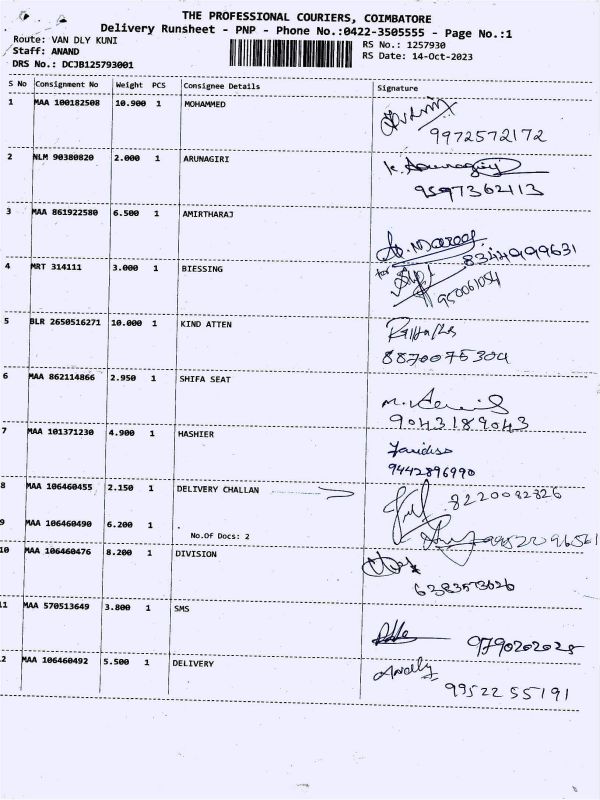 THE PROFESSIONAL COURIERS, COIMBATORE
Delivery Runsheet - PNP - Phone No.:0422-3505555 - Page No.:1
Route: VAN DLY KUNI
RS No.: 1257930
Staff: ANAND
RS Date: 14-Oct-2023
DRS No.: DCJB125793001
S No Consignment No Weight PCS Consignee Details Signature
1 MAA 100182508 10.900 1 MOHAMMED
9972572172
2 NLM 90380820 2.000 1 ARUNAGIRI
K. Arunagiri
9597362113
3 MAA 861922580 6.500 1 AMIRTHARAJ
8344999631
4 MRT 314111 3.000 1 BIESSING
for
950061084
5 BLR 2650516271 10.000 1 KIND ATTEN
8870075304
6 MAA 862114866 2.950 1 SHIFA SEAT
9043189043
7 MAA 101371230 4.900 1 HASHIER
9442896990
8 MAA 106460455 2.150 1 DELIVERY CHALLAN
8220082826
9 MAA 106460490 6.200 1
No.Of Docs: 2
9952296561
10 MAA 106460476 8.200 1 DIVISION
6383573626
11 MAA 570513649 3.800 1 SMS
9790202028
2 MAA 106460492 5.500 1 DELIVERY
99522 55191